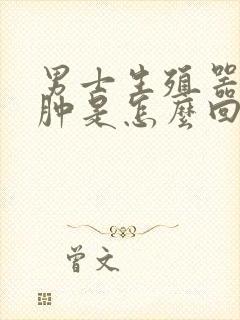 男士生殖器
肿是怎麼回
曾文